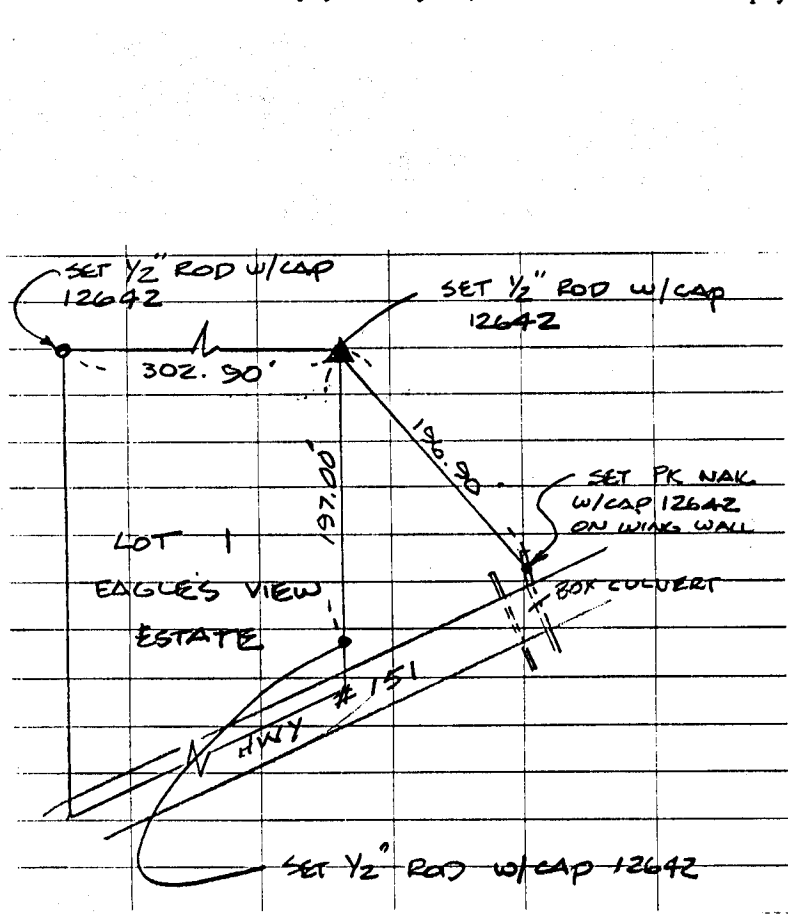 SET 1/2" ROD W/CAP
12642
SET 1/2" ROD W/CAP
12642
302.90'
196.90'
197.00'
SET PK NAIL
W/CAP 12642
ON WING WALL
LOT 1
EAGLE'S VIEW
ESTATE
BOX CULVERT
HWY # 151
SET 1/2" ROD W/CAP 12642